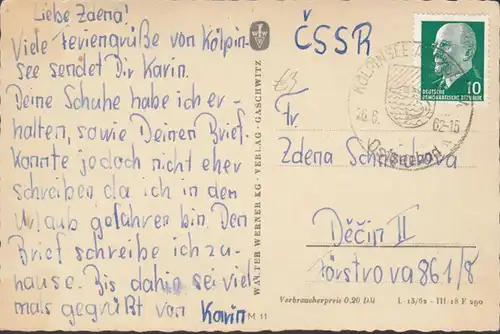 Liebe Zdena!
Viele Feriengrüße von Kölpin-
see sendet Dir Karin.
Deine Schuhe habe ich er-
halten, sowie Deinen Brief.
Konnte jedoch nicht eher
schreiben da ich in den
Urlaub gefahren bin. Den
Brief schreibe ich zu-
hause. Bis dahin sei viel
mals gegrüßt von Karin
WALTER WERNER KG · VERLAG · GASCHWITZ
M 11
ČSSR
KÖLPINSEE
62-15
Ostseebad
10
DEUTSCHE
DEMOKRATISCHE REPUBLIK
Fr.
Zdena
Děčín II
861/8
Verbraucherpreis 0,20 DM
L 13/62 – III 18 F 290